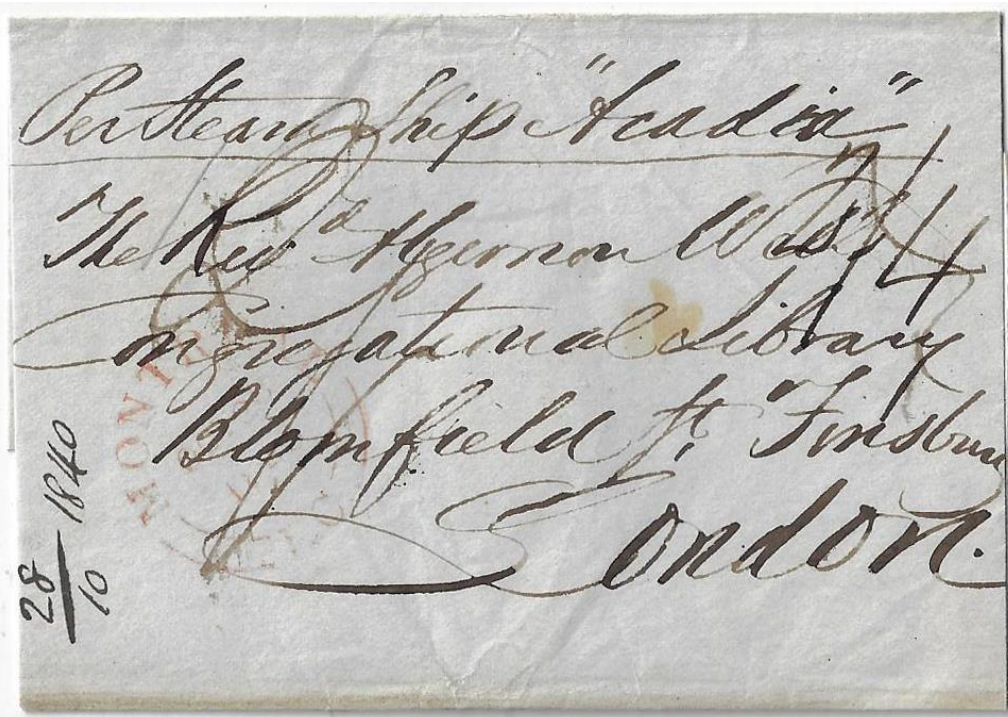 Per Steam Ship "Acadia"
The Revd Algernon Wells
Congregational Library
Blomfield St. Finsbury
London.
1/4
MONTR
28/10 1840